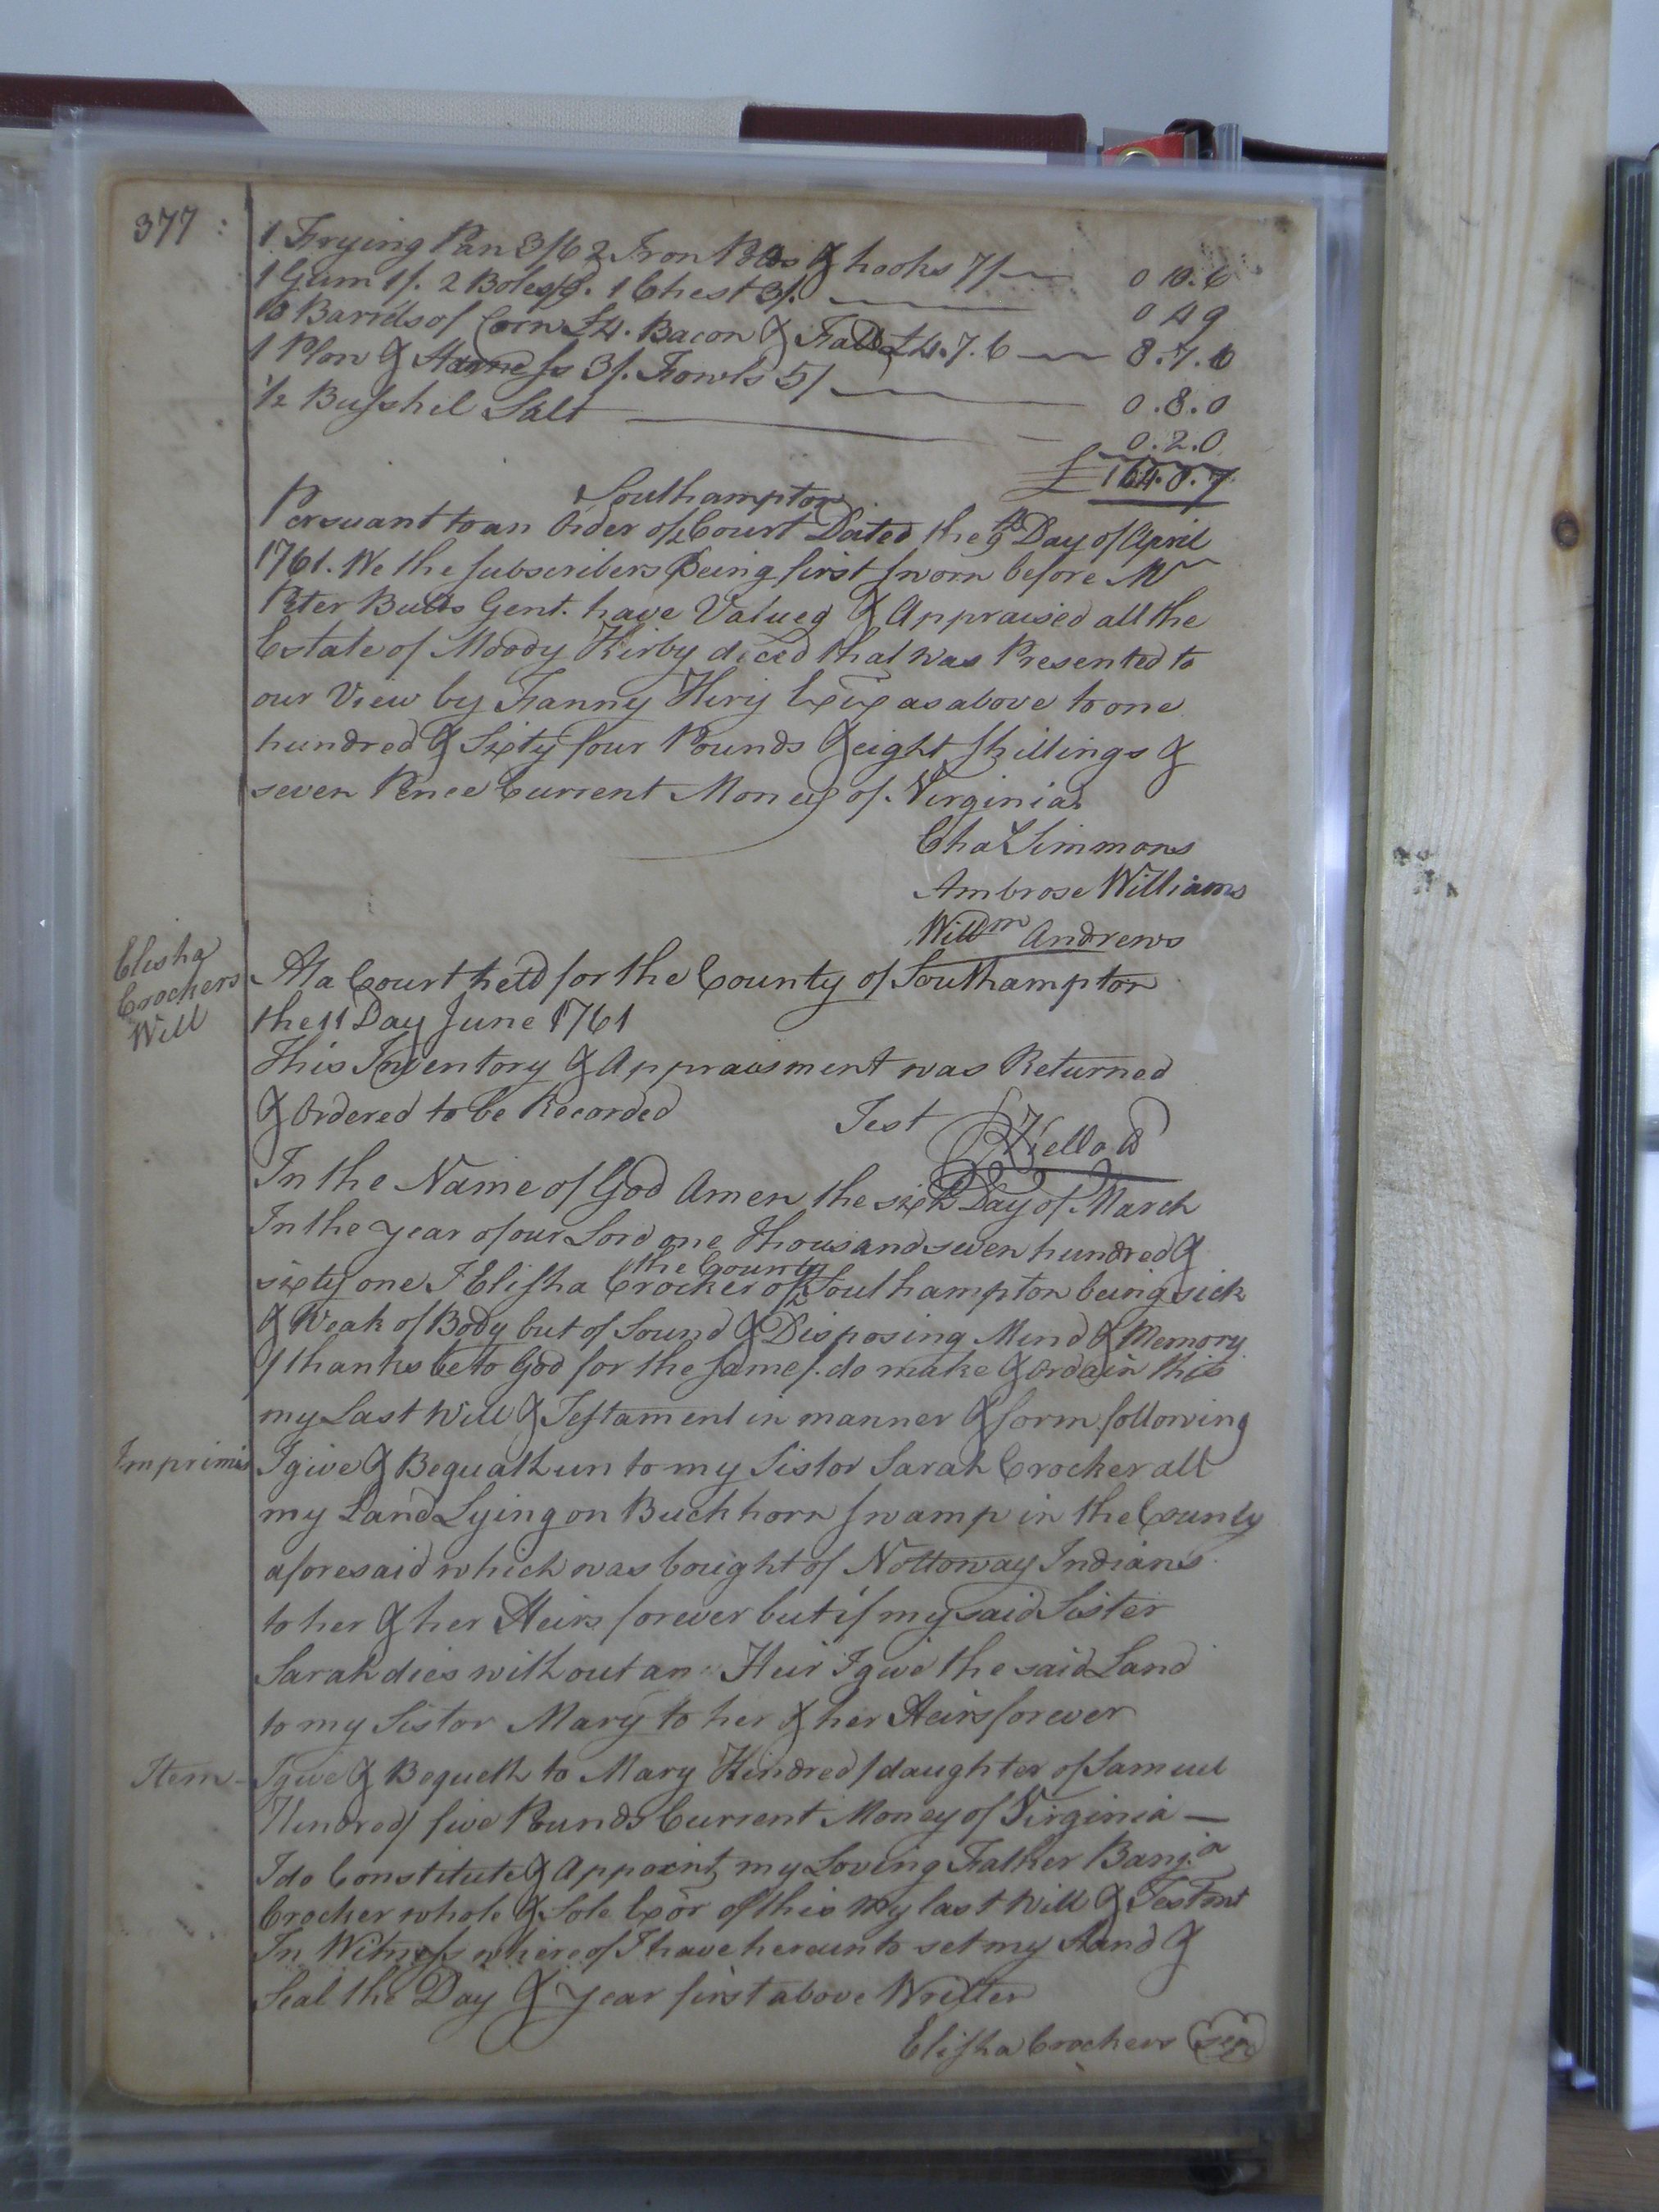 377
1 Frying Pan 3/6 2 Iron Potts & hooks 7/ 0 10.6
1 Gum 1/. 2 Boles /9. 1 Chest 3/. 0 4 9
10 Barrels of Corn £4. Bacon & Fatt £4.7.6 8.7.6
1 Plow & Harness 3/. Fowls 5/ 0.8.0
1/2 Busshil Salt 0.2.0
£164.8.7
Persuant to an Order of Southampton Court Dated the 9th Day of April
1761. We the subscribers Being first sworn before Mr
Peter Butts Gent. have Valued & Appraised all the
Estate of Moody Kirby deced that was Presented to
our View by Fanny Kiry Exix as above to one
hundred & Sixty four Pounds & eight shillings &
seven Pence Current Money of Virginia
Cha Simmons
Ambrose Williams
Willm Andrews
Elisha
Crockers
Will
At a Court held for the County of Southampton
the 11 Day June 1761
This Inventory & Appraisment was Returned
& Ordered to be Recorded Test R Kello
In the Name of God Amen the sixth Day of March
In the year of our Lord one Thousand seven hundred &
sixty one I Elisha Crocker of the County Southampton being sick
& Weak of Body but of Sound & Disposing Mind & Memory
/ thanks be to God for the same /. do make & Ordain this
my Last Will & Testament in manner & form following
Imprimis I give & Bequath un to my Sistor Sarah Crocker all
my Land Lying on Buckhorn swamp in the County
aforesaid which was bought of Nottoway Indians
to her & her Heirs forever but if my said Sister
Sarah dies without an Heir I give the said Land
to my Sistor Mary to her & her Heirs forever
Item I give & Bequeth to Mary Kindred / daughter of Samuel
Kindred / five Pounds Current Money of Virginia —
I do Constitute & Appoint my Loving Father Banja
Crocker whole & Sole Exor of this my last Will & Testmt
In Witness whereof I have hereunto set my Hand &
Seal the Day & year first above Written
Elisha Crockers